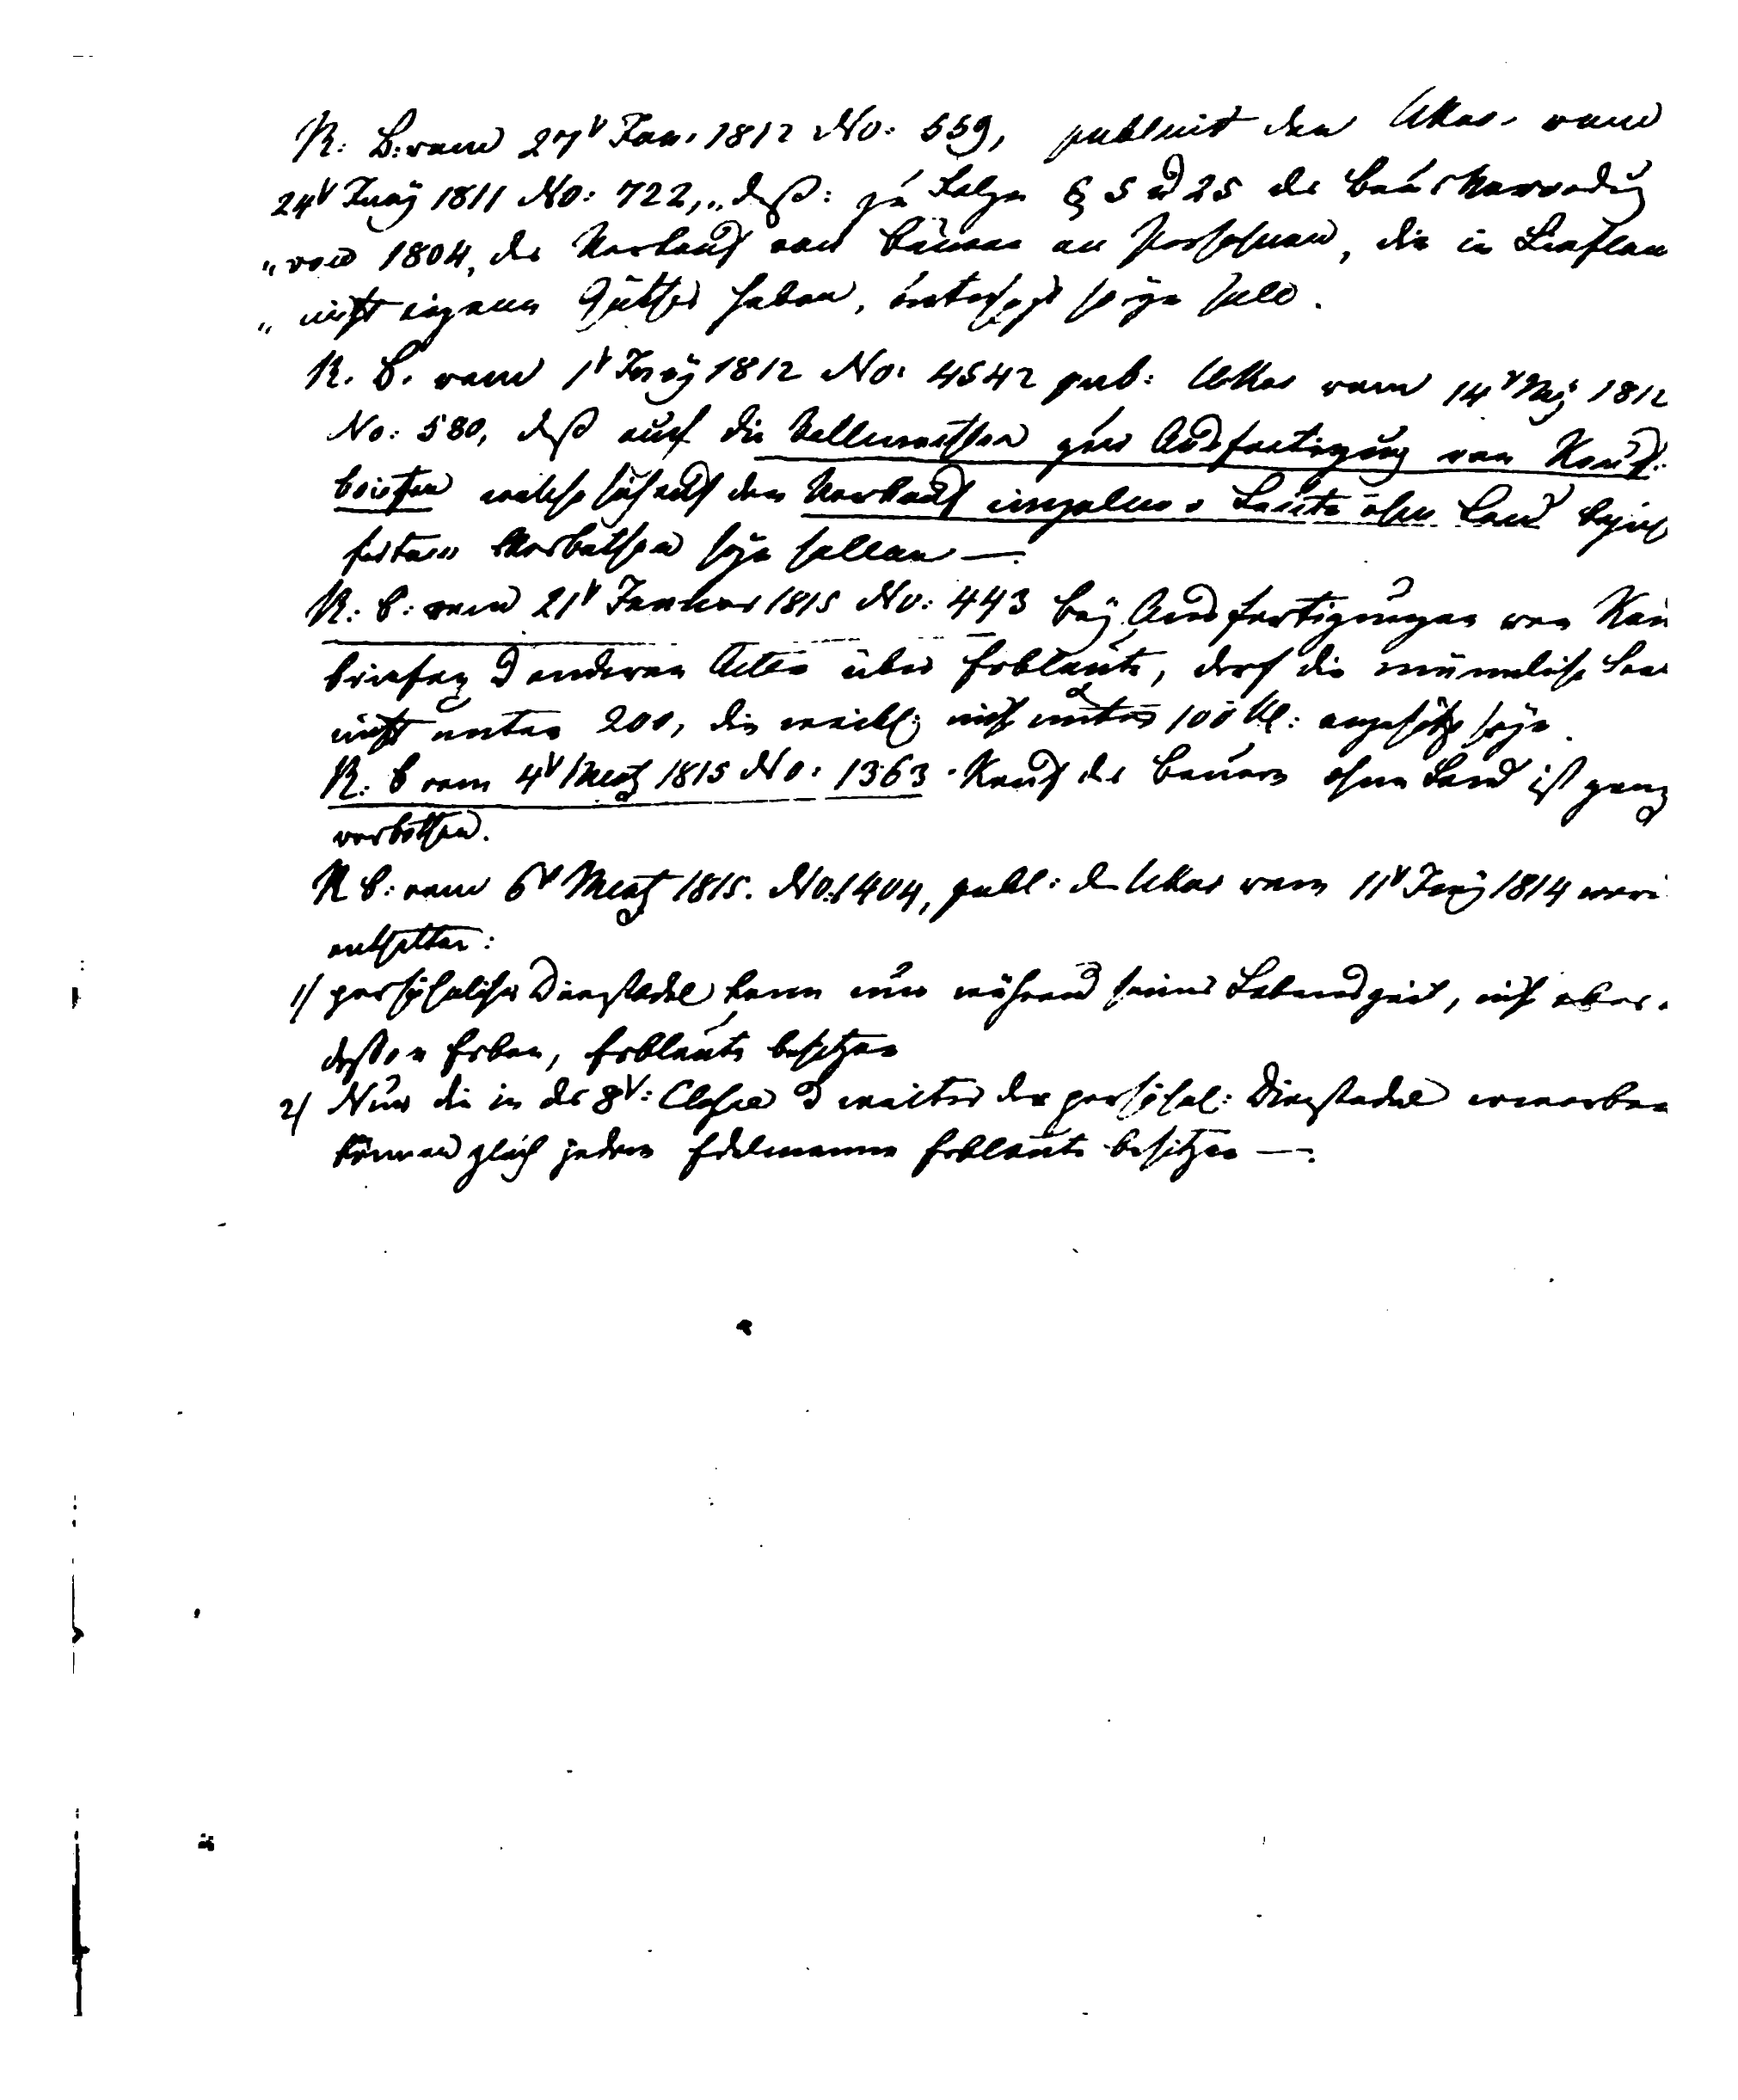 R: B: vom 27t Jan. 1812 No: 559, publicirt den Ukas vom
24t Juny 1811 No: 722, „daß: zu Folge § 5 u 25 der Bauerverordng
„von 1804, der Verkauf von Bauern an Personen, die in Lieflan
„nicht eigene Güther haben, untersagt seyn soll.
R. B. vom 1t July 1812 No: 4542 pub: Ukas vom 14t May 1812
No: 580, daß auch die Vollmachten zur Ausfertigung von Kauf:
briefen welche sich auf den Verkauf einzelner Leute ohne Land bezieh
verbothen seyn sollen —.
R: B: vom 21t Januar 1815 No: 443 bey Ausfertigungen von Kau
briefen u anderen Acten über Erbleute, darf die männliche See
nicht unter 200, die weibl: nicht unter 100 Rl: angesetzt seyn.
R: B vom 4t Merz 1815 No: 1363. Kauf der Bauern ohne Land ist ganz
verbothen.
R B: vom 6t Merz 1815. No: 1404, publ: d Ukas vom 11t Juny 1814 wori
enthalten:
1/ persöhnlicher Dienstadel kann nur während seiner Lebenszeit, nicht aber
dessen Erben, Erbleute besitzen
2/ Nur die in der 8t: Classe u weiter den persöhnl: Dienstadel erworben
können gleich jedem Edelmanne Erbleute besitzen —.